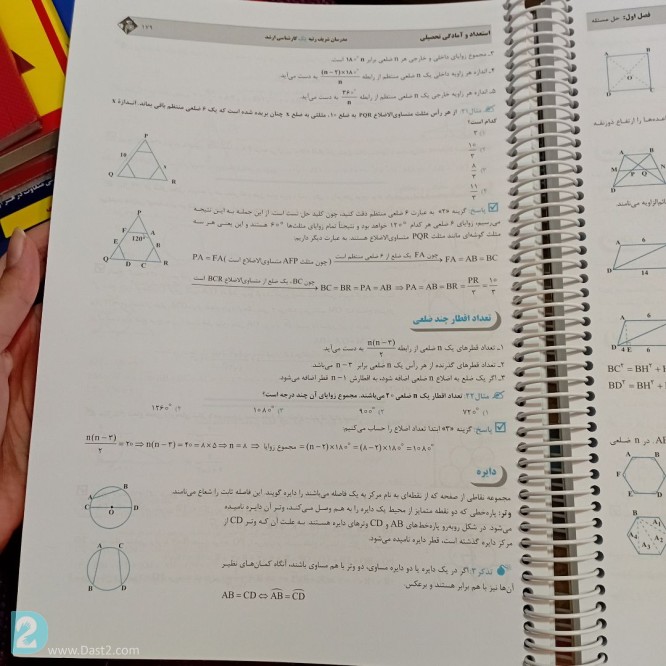 استعداد و آمادگی تحصیلی
مدرسان شریف رتبه یک کارشناسی ارشد
۱۷۹
۳ـ مجموع زوایای داخلی و خارجی هر n ضلعی برابر n ۱۸۰° است.
۴ـ اندازه هر زاویه داخلی یک n ضلعی منتظم از رابطه (n − ۲)×۱۸۰° / n به دست می‌آید.
۵ـ اندازه هر زاویه خارجی یک n ضلعی منتظم از رابطه ۳۶۰° / n به دست می‌آید.
مثال ۲۱: از هر رأس مثلث متساوی‌الاضلاع PQR به ضلع ۱۰، مثلثی به ضلع x چنان بریده شده است که یک ۶ ضلعی منتظم باقی بماند. اندازهٔ x
کدام است؟
۱) ۳
۲) ۱۰/۳
۳) ۸/۳
۴) ۱۱/۳
P
10
x
Q
R
پاسخ: گزینه «۲» به عبارت ۶ ضلعی منتظم دقت کنید، چون کلید حل تست است. از این جمله به این نتیجه
می‌رسیم، زوایای ۶ ضلعی هر کدام ۱۲۰° خواهد بود و نتیجتاً تمام زوایای مثلث‌ها ۶۰° هستند و این یعنی هر سه
مثلث گوشه‌ای مانند مثلث PQR متساوی‌الاضلاع هستند. به عبارت دیگر داریم:
P
F
A
120°
E
B
Q
D
C
R
PA = FA (چون مثلث AFP متساوی‌الاضلاع است) چون FA یک ضلع از ۶ ضلعی منتظم است → FA = AB = BC
چون BC، یک ضلع از متساوی‌الاضلاع BCR است → BC = BR = PA = AB ⇒ PA = AB = BR = PR/۳ = ۱۰/۳
تعداد اقطار چند ضلعی
۱ـ تعداد قطرهای یک n ضلعی از رابطه n(n − ۳) / ۲ به دست می‌آید.
۲ـ تعداد قطرهای گذرنده از هر رأس یک n ضلعی برابر n − ۳ می‌باشد.
۳ـ اگر یک ضلع به اضلاع n ضلعی اضافه شود، به اقطارش n − ۱ قطر اضافه می‌شود.
مثال ۲۲: تعداد اقطار یک n ضلعی ۲۰ می‌باشند. مجموع زوایای آن چند درجه است؟
۱) ۷۲۰° ۲) ۹۰۰° ۳) ۱۰۸۰° ۴) ۱۲۶۰°
پاسخ: گزینه «۳» ابتدا تعداد اضلاع را حساب می‌کنیم:
n(n − ۳) / ۲ = ۲۰ ⇒ n(n − ۳) = ۴۰ = ۸ × ۵ ⇒ n = ۸ ⇒ مجموع زوایا = (n − ۲)×۱۸۰° = (۸ − ۲)×۱۸۰° = ۱۰۸۰°
دایره
مجموعه نقاطی از صفحه که از نقطه‌ای به نام مرکز به یک فاصله می‌باشند را دایره گویند. این فاصله ثابت را شعاع می‌نامند.
وتر: پاره‌خطی که دو نقطه متمایز از محیط یک دایره را به هم وصل می‌کنید، وتر آن دایره نامیده
می‌شود. در شکل روبه‌رو پاره‌خط‌های AB و CD وترهای دایره هستند. به علت آن که وتر CD از
مرکز دایره گذشته است، قطر دایره نامیده می‌شود.
B
A
C
O
D
تذکر ۳: اگر در یک دایره یا دو دایره مساوی، دو وتر با هم مساوی باشند، آنگاه کمان‌های نظیر
آن‌ها نیز با هم برابر هستند و برعکس.
A
C
B
D
AB = CD ⇔ AB = CD
فصل اول: حل مسئله
A
B
O
D
C
ارتفاع ذوزنقه
A
B
M
P
Q
N
D
می‌نامند
A
6
D
14
A
6
D
4
E
6
BC² = BH² +
BD² = BH² +
n ضلعی
A
B
F
E
D
B
A₄
A₁
A₃
A₂
2
www.Dast2.com